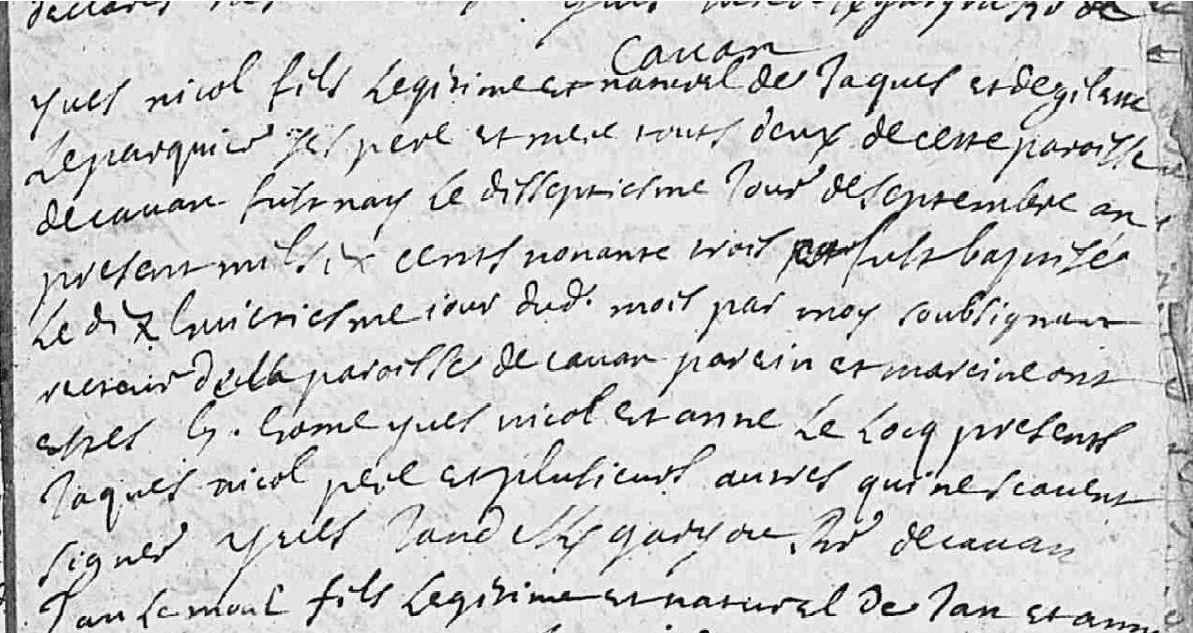 Cavan
yves nicol fils Legitime et naturel de Jaques et de gilette
Leparquier ses pere et mere touts deux de cette paroisse
de cavan fut nay le disseptiesme Jour de Septembre an
present mil six cents nonante trois fust baptisé
Le dix huictiesme iour dud. mois par moy soubsignant
recteur de la paroisse de cavan parein et mareine ont
estes h. home yves nicol et anne Le Locq presents
Jaques nicol pere et plusieurs autres qui ne scavent
signer yves de cavan
fils Legitime et naturel de Jan et anne